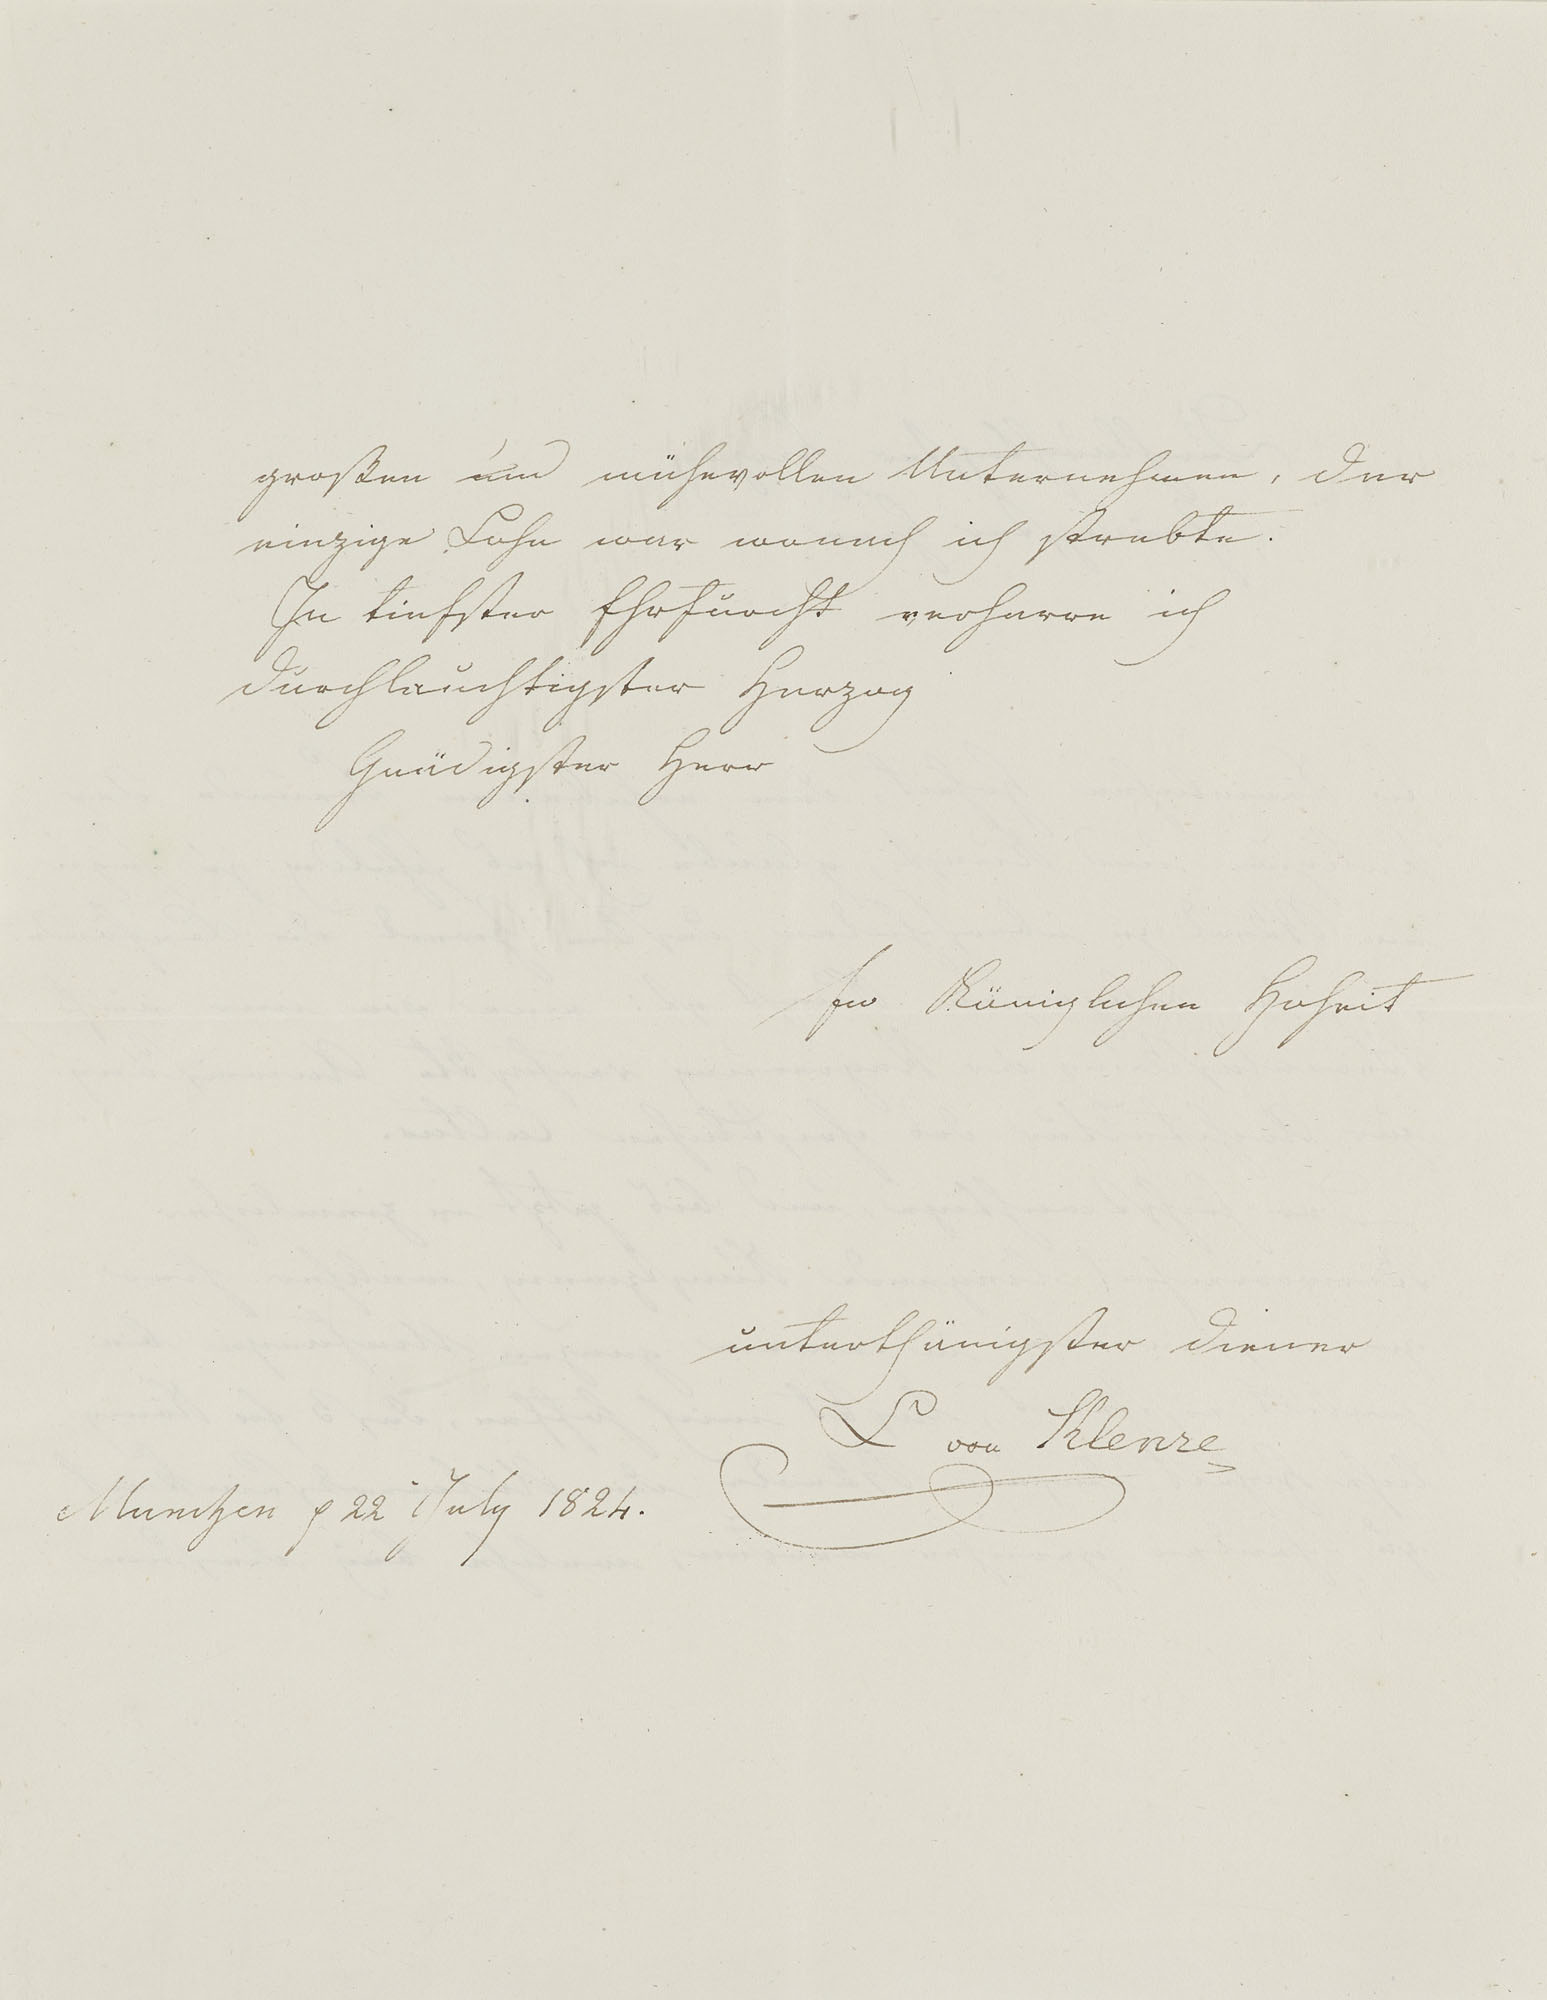 großen und mühevollen Unternehmen, der
einzige Lohn war wonach ich strebte.
In tiefster Ehrfurcht verharre ich
Durchlauchtigster Herzog
Gnädigster Herr
Ew Königlichen Hoheit
unterthänigster Diener
L von Klenze
Munchen d 22 July 1824.